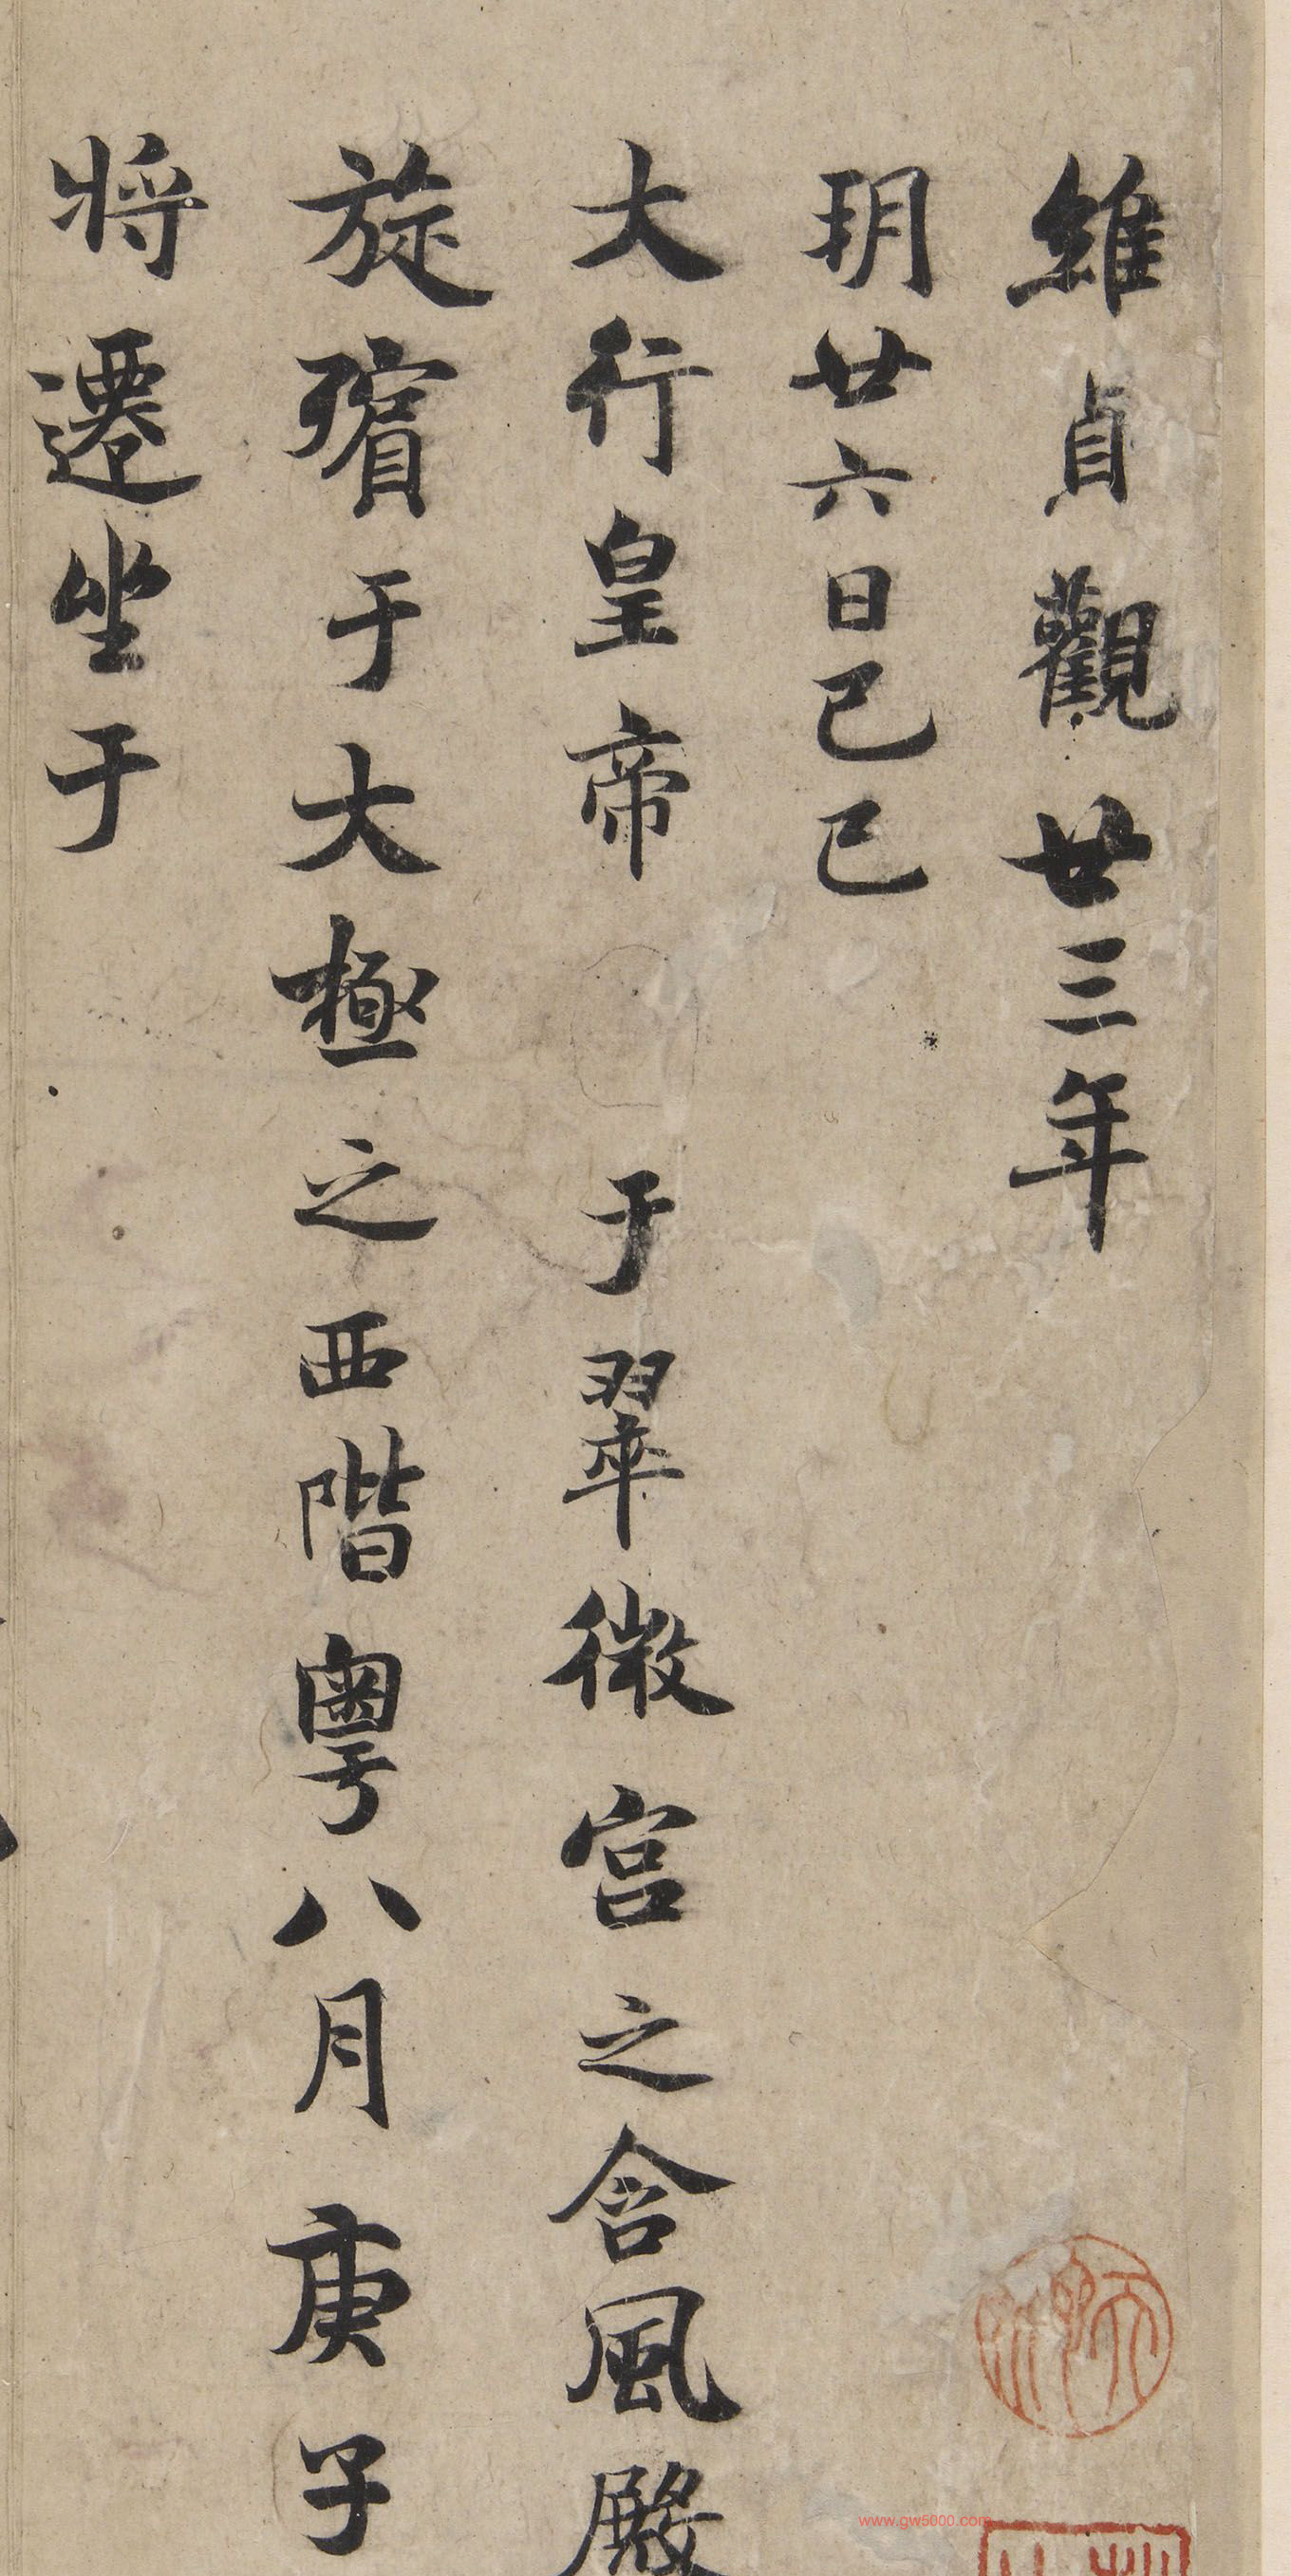 維貞觀廿三年
玥廿六日己巳
大行皇帝 于翠微宮之含風殿
旋殯于大極之西階粤八月庚子
將遷坐于
www.gw5000.com